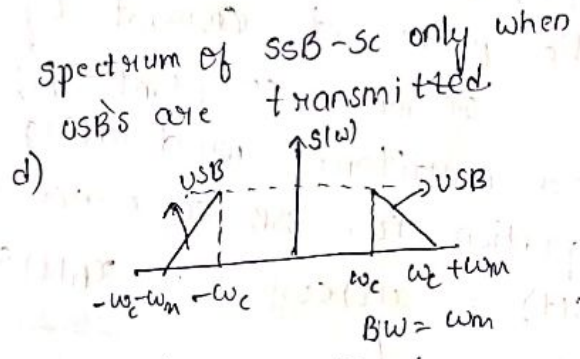 Spectrum of SSB-SC only when
USB's are transmitted
S(ω)
d)
USB
USB
-ωc-ωm -ωc ωc ωc+ωm
BW = ωm